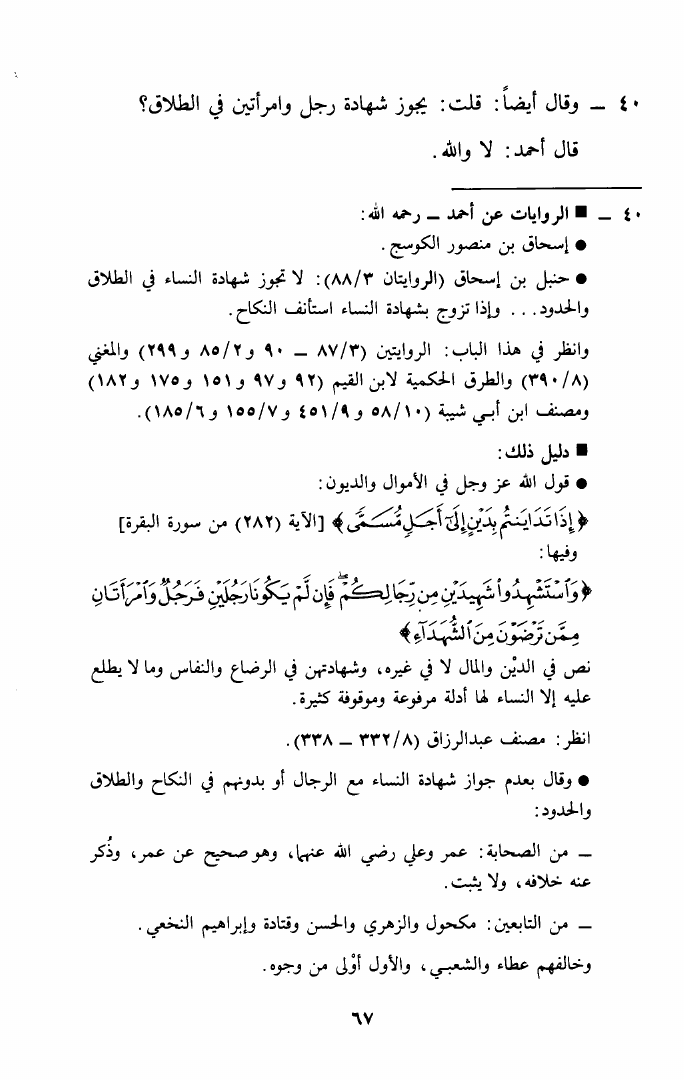 ٤٠ ــ وقال أيضاً: قلت: يجوز شهادة رجل وامرأتين في الطلاق؟
قال أحمد: لا والله.
٤٠ ــ ■ الروايات عن أحمد ــ رحمه الله:
● إسحاق بن منصور الكوسج.
● حنبل بن إسحاق (الروايتان ٨٨/٣): لا تجوز شهادة النساء في الطلاق
والحدود... وإذا تزوج بشهادة النساء استأنف النكاح.
وانظر في هذا الباب: الروايتين (٨٧/٣ ــ ٩٠ و ٨٥/٢ و ٢٩٩) والمغني
(٣٩٠/٨) والطرق الحكمية لابن القيم (٩٢ و ٩٧ و ١٥١ و ١٧٥ و ١٨٢)
ومصنف ابن أبي شيبة (٥٨/١٠ و ٤٥١/٩ و ١٥٥/٧ و ١٨٥/٦).
■ دليل ذلك:
● قول الله عز وجل في الأموال والديون:
﴿إِذَا تَدَايَنتُم بِدَيْنٍ إِلَىٰٓ أَجَلٍ مُّسَمًّى﴾ [الآية (٢٨٢) من سورة البقرة]
وفيها:
﴿وَٱسْتَشْهِدُوا۟ شَهِيدَيْنِ مِن رِّجَالِكُمْ ۖ فَإِن لَّمْ يَكُونَا رَجُلَيْنِ فَرَجُلٌ وَٱمْرَأَتَانِ
مِمَّن تَرْضَوْنَ مِنَ ٱلشُّهَدَآءِ﴾
نص في الديْن والمال لا في غيره، وشهادتهن في الرضاع والنفاس وما لا يطلع
عليه إلا النساء لها أدلة مرفوعة وموقوفة كثيرة.
انظر: مصنف عبدالرزاق (٣٣٢/٨ ــ ٣٣٨).
● وقال بعدم جواز شهادة النساء مع الرجال أو بدونهم في النكاح والطلاق
والحدود:
ــ من الصحابة: عمر وعلي رضي الله عنهما، وهو صحيح عن عمر، وذُكر
عنه خلافه، ولا يثبت.
ــ من التابعين: مكحول والزهري والحسن وقتادة وإبراهيم النخعي.
وخالفهم عطاء والشعبي، والأول أوْلى من وجوه.
٦٧